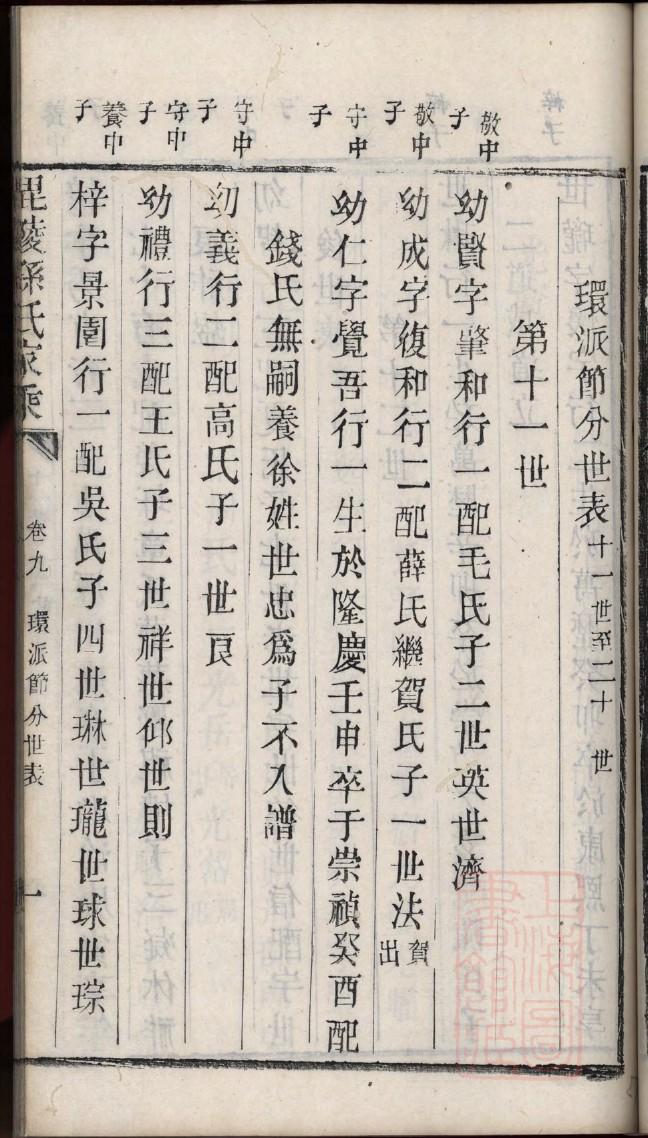 環派節分世表十一世至二十世
第十一世
敬中子
幼賢字肇和行一配毛氏子二世英世濟
敬中子
幼成字復和行二配薛氏繼賀氏子一世法賀出
守中子
幼仁字覺吾行一生於隆慶壬申卒于崇禎癸酉配
錢氏無嗣養徐姓世忠爲子不入譜
守中子
幼義行二配高氏子一世良
守中子
幼禮行三配王氏子三世祥世仰世則
養中子
梓字景園行一配吳氏子四世琳世瓏世球世琮
毘陵孫氏家乘
卷九
環派節分世表
一